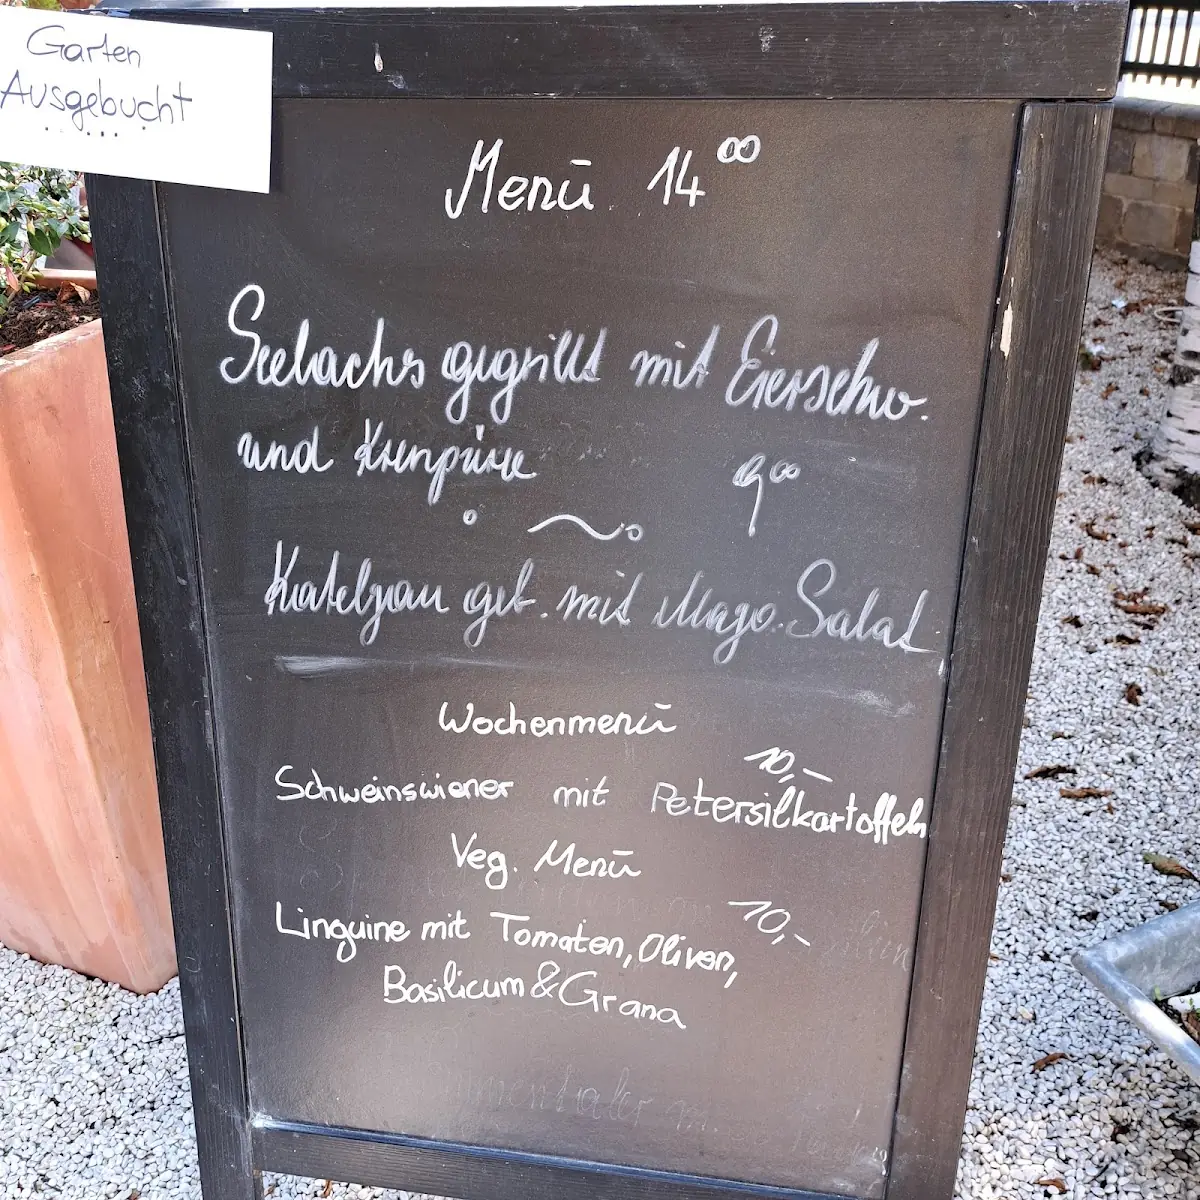 Garten
Ausgebucht
Menü 14⁰⁰
Seelachs gegrillt mit Eierschw.
und Krenpüree 9⁰⁰
Katelzau geb. mit Mayo. Salat
Wochenmenü
10,-
Schweinswiener mit Petersilkartoffeln
Veg. Menü
10,-
Linguine mit Tomaten, Oliven,
Basilicum & Grana